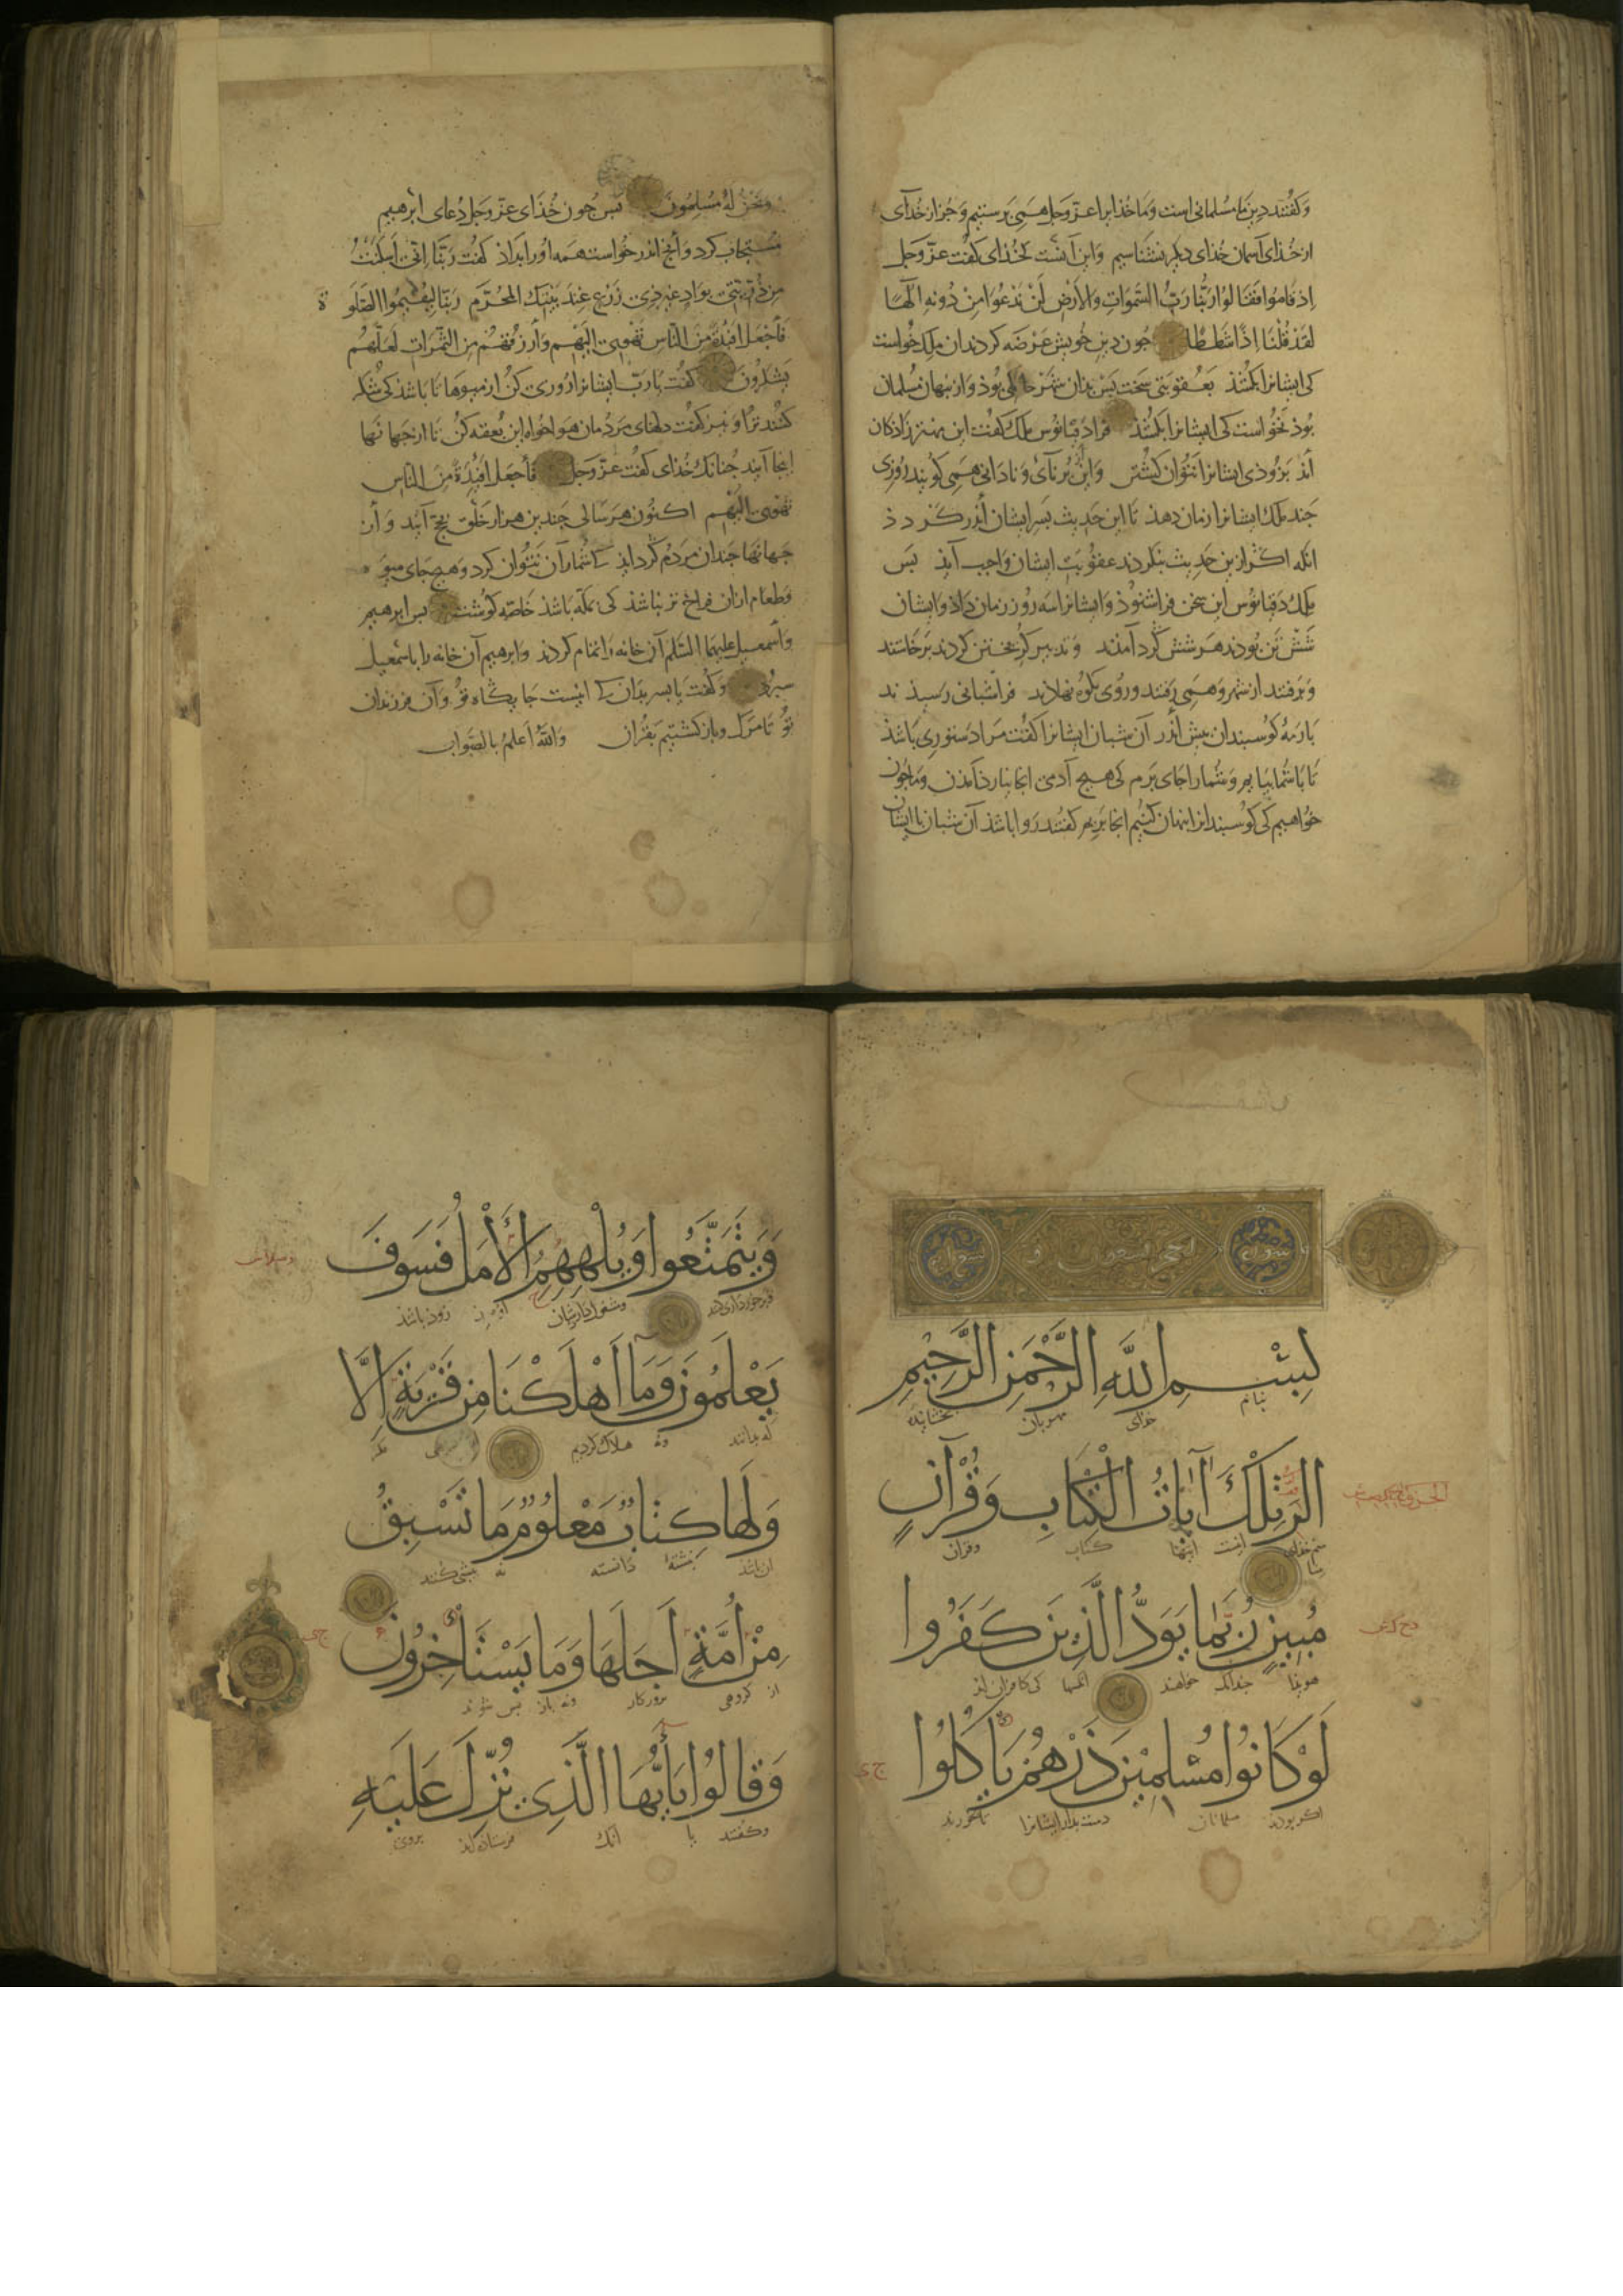 وكفتند دين ما مسلمانی است وما خذايرا عزّوجلّ همی پرستيم وجز از خُذای
از خُذای آسمان خُذای ديكر نشناسيم وابن آنست كخُذای كفت عزّوجلّ
اِذ قَاموُا فقَالوُا رَبُّنا رَبُّ السَّمَواتِ وَالأرْضِ لَنْ نَدْعُوَا مِنْ دُونِهِ الٰهًا
لقَدْ قُلْنَا اِذًا شَطَطًا جون دين خويش عَرْضه كردندان ملك خواست
كی ايشانرا بكشذ بعُقوبتی سَخت پَسْ بدان شهَرْ بوذ واز نهان مسلمان
بُوذ نخواست كی ايشانرا بكشذ فرا دَقيانُوس ملك كفت اين مهتر زاذكان
اَند بزوذی ايشانرا نتوان كشتن واين بُرنآی ونادانی همی كويند روزی
جند ملك ايشانرا زمان دهذ تا اين حَديث بسر ايشان اندر كردذ
انكه اكر ازين حَديث بنكردند عقوُبت ايشان واجب آيذ بس
ملك دَقيانُوس اين سخن فرا شنوذ وايشانرا سه روز زمان داذ وايشان
شَشْ تَن بُودند هَر شش كرد آمذند وتدبير كريختن كردند برخاستند
وبَرفتند از شهر وهمی رَفتند وروُی بكوُه نهاذند فرا شبانی رسيذند
با رَمۀ كوُسبندان پيش اندر آن شبان ايشانرا كفت مَرا دَستوری باشذ
تا با شما بيايم وشما را جای برم كی هيج آدمی انجا نيارذ آمذن وما جون
خواهيم كی كوُسبندانرا نهان كنيم انجا بريم كفتند روا باشذ آن شبان با ايشان
ونَحْنُ لهُ مُسْلِمُونَ پس جون خُذَای عزّوجَلّ دُعای ابرهيم
مُستجاب كرد وآنج اندر خواست همه اورا بداذ كفت رَبَّنَا اِنّی اَسْكَنْتُ
مِن ذُرّيّتی بوَادٍ غيرِ ذی زَرْعٍ عِندَ بَيْتِكَ المُحرَّم رَبَّنا لِيُقيمُوا الصَّلَوة
فَاَجْعَلْ اَفئدَةً مِنَ النَّاسِ تَهْوِی اِلَيْهِمْ وَاَرزُقهُمْ مِن الثَّمَراتِ لَعَلَّهُمْ
يَشْكُرُونَ كفت يا رَبّ ايشانرا روزی كُنْ از ميوهَا تا باشذ كی شكر
كنند ترا ونيز كفت دلهای مَردُمان هوا خواه اين بُقعه كنْ تا از جهانها
اينجا آيند جُنانك خُذای كفت عزّوجَلّ فَاَجعَلْ اَفئِدَةً مِنَ النّاس
تَهْوِی اِلَيْهِمْ اكنُون هَر سَالی جندين هزار خلق بحج آيند وَاَزن
جهانها جندان مردُم كرد آيذ كی شُمار آن نَتَوُان كرد وهيج جای ميوه
وَطعام ازان فراخ تر نباشذ كی بمكّه باشذ خاصّه كوُشت پس ابرهيم
وَاسمعيل عليهما السَّلم آن خانه را تمام كردند وابرهيم آن خانه را باسمعيل
سپرُد وكفت يا بسر بدان كی اينست جايكاه توُ وآن فرزندان
توُ تا مَرك وباز كشتيم بقرُان وَاللّٰهُ اَعلمُ بالصَّوابِ
سورة
بِسْمِ اللَّهِ الرَّحْمَنِ الرَّحِيمِ
بنام خذای مهربان بخشاينده
الر تِلْكَ آيَاتُ الْكِتَابِ وَقُرْآنٍ
اينست ايتها كتاب وقران
مُبِينٍ رُبَمَا يَوَدُّ الَّذِينَ كَفَرُوا
هويذا جندانك خواهند انكسها كی كافران اند
لَوْ كَانُوا مُسْلِمِينَ ذَرْهُمْ يَأْكُلُوا
اكر بودند مسلمانان دست بدار ايشانرا تا بخورند
وَيَتَمَتَّعُوا وَيُلْهِهِمُ الْأَمَلُ فَسَوْفَ
وبرخورداری كنند ومشغول دارذشان اميذ زوذ باشذ
يَعْلَمُونَ وَمَا أَهْلَكْنَا مِنْ قَرْيَةٍ إِلَّا
كه بدانند ونه هلاك كرديم
وَلَهَا كِتَابٌ مَعْلُومٌ مَا تَسْبِقُ
نبشتۀ دانسته نه پيشی كند
مِنْ أُمَّةٍ أَجَلَهَا وَمَا يَسْتَأْخِرُونَ
از كروهی روزكار ونه باز بس شوند
وَقَالُوا يَا أَيُّهَا الَّذِي نُزِّلَ عَلَيْهِ
وكفتند يا آنك فرستاذه اند بروی